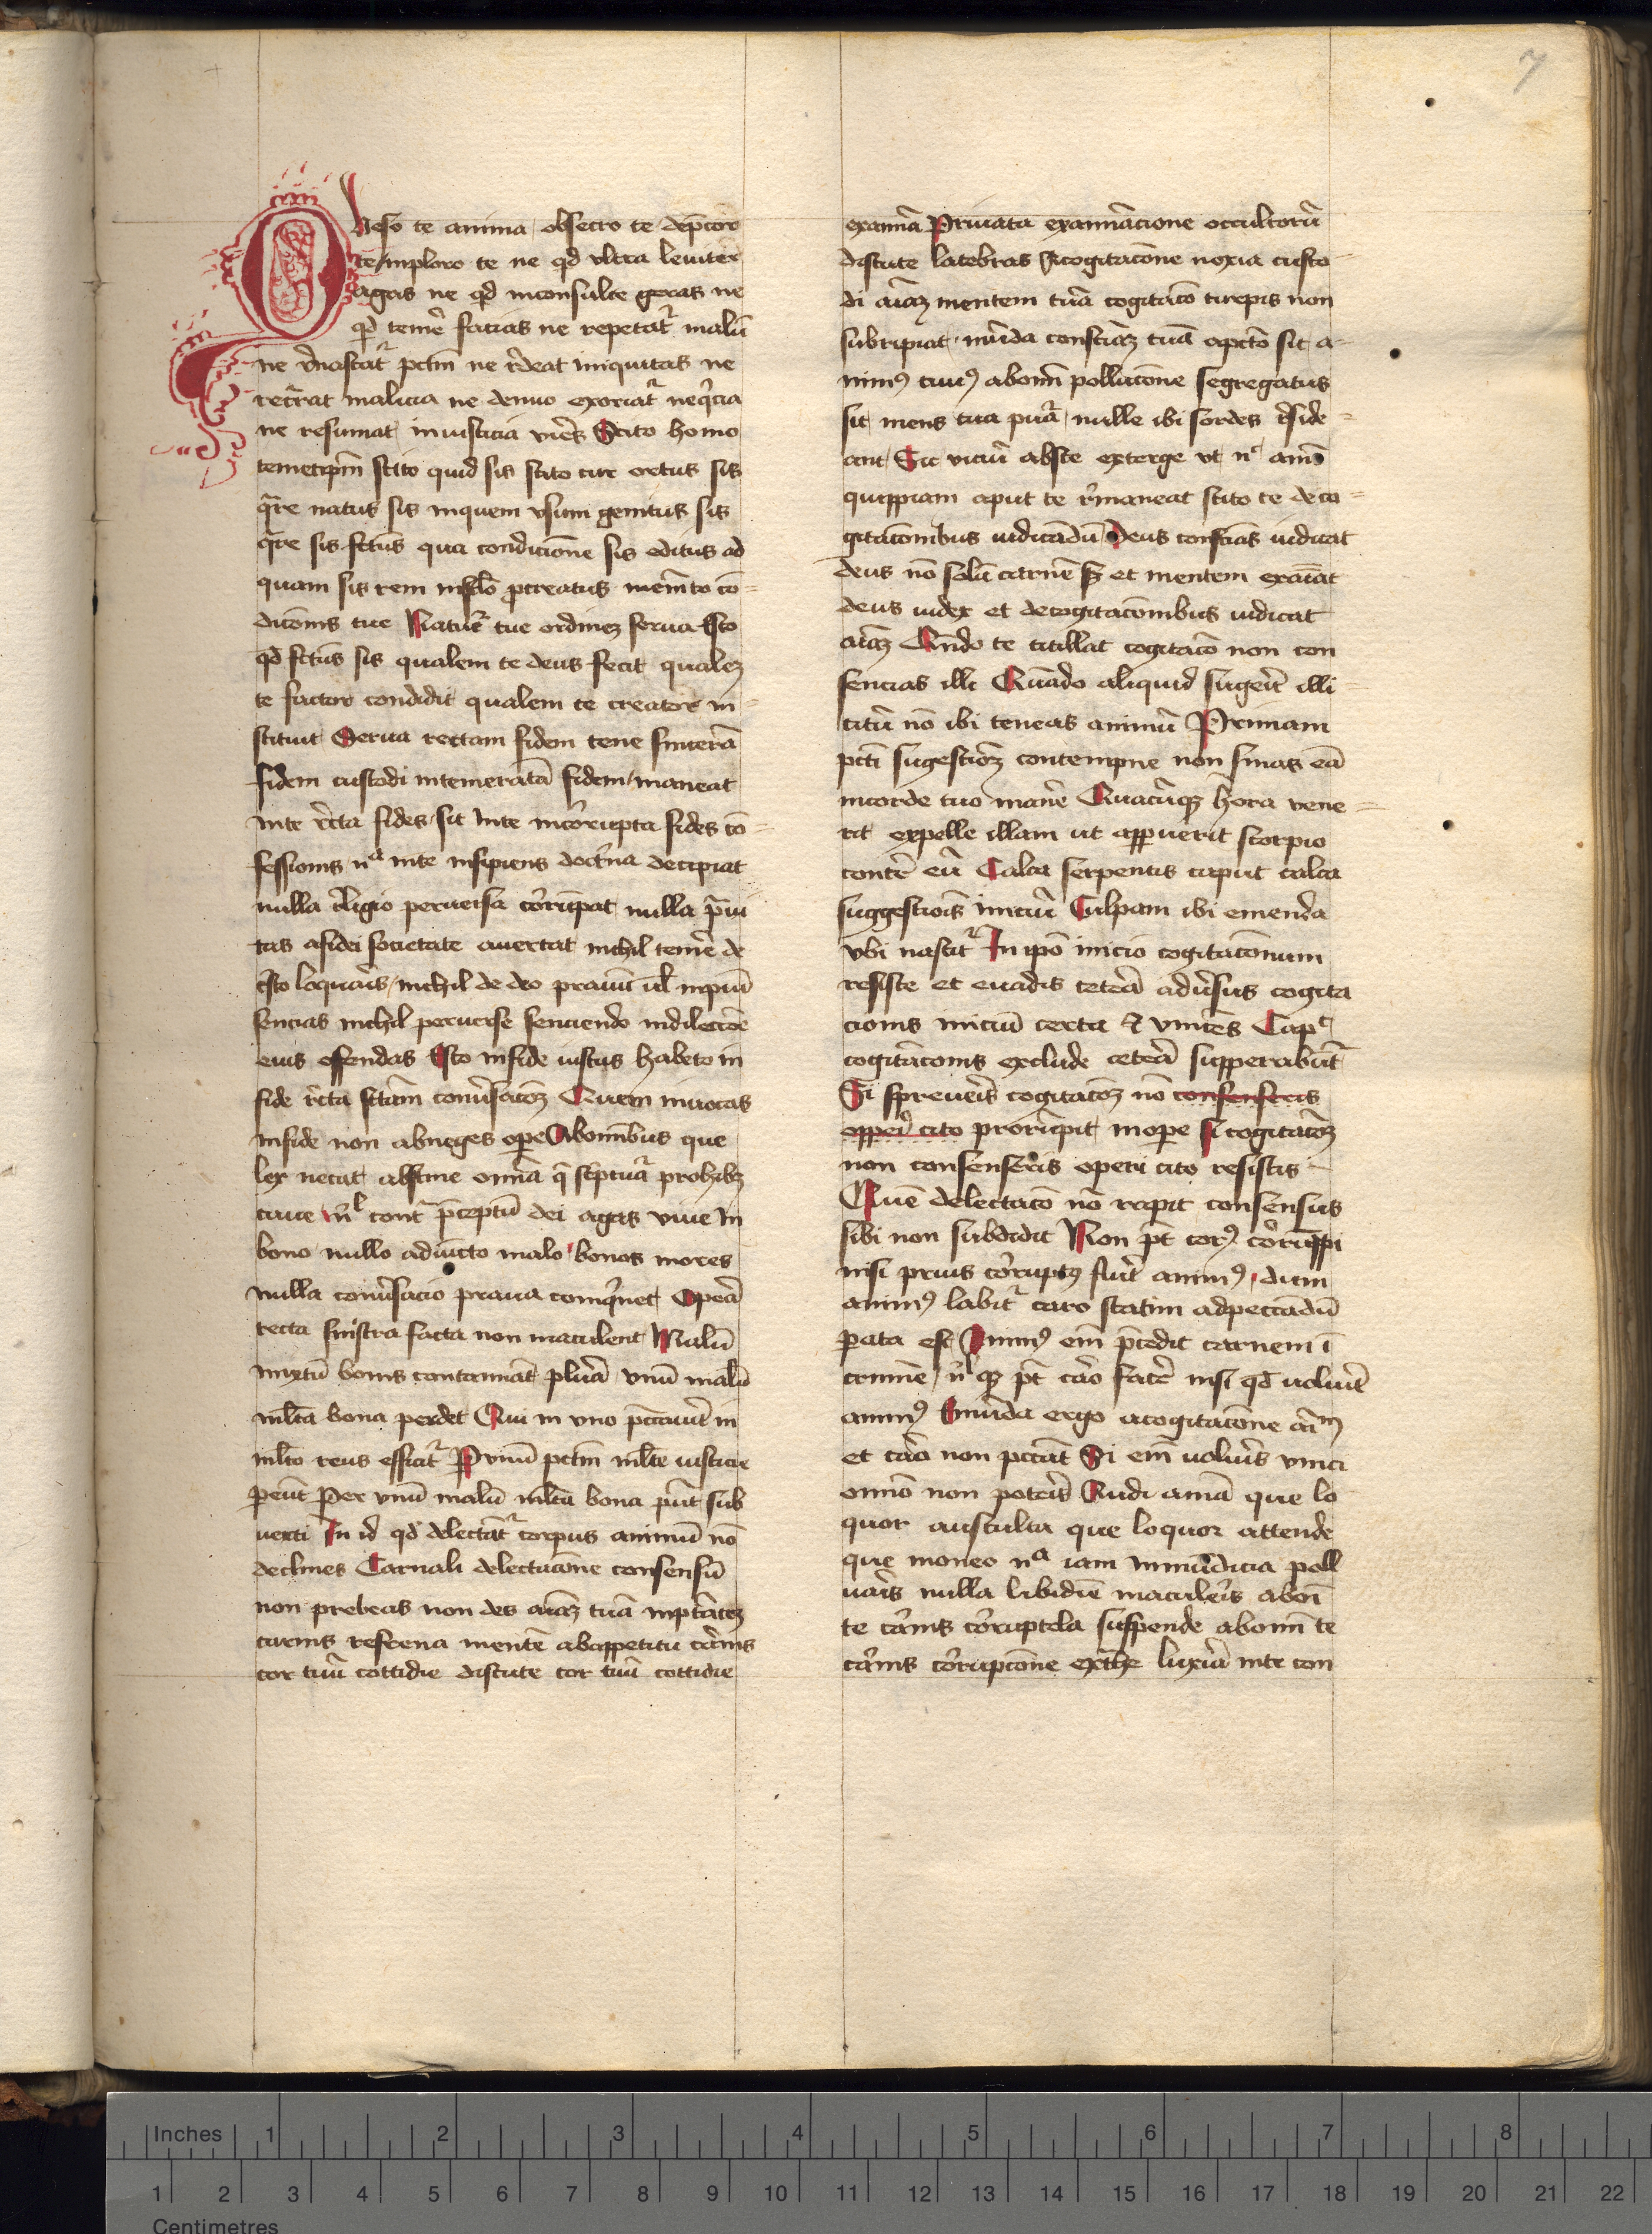 7
Queso te anima obsecro te dep̄cor
te inploro te ne qd vltra leuiter
agas ne qd inconsulte geras ne
qd temē facias ne repetat᷑ malū
ne r̄nascat᷑ pctm̄ ne r̄deat iniquitas ne
recr̄rat malicia ne denuo exoriat᷑ neq̄cia
ne resumat iniusticia vir̄es Scito homo
temetip̄m scito quid sis scito cur ortus sis
q̄re natus sis inquem vsum genitus sis
q̄re sis fctūs qua condicione sis editus ad
quam sis rem in sclō procreatus mem̄to cō-
dicōnis tue Natur̄ tue ordinez serua Esto
qd fctūs sis qualem te deus fecit qualez
te factor condidit qualem te creator in-
stituit Serua rectam fidem tene sincerā
fidem custodi intemeratā fidem maneat
inte r̄cta fides sit inte incōrrupta fides cō-
fessionis nᵃ inte insipiens doctr̄na decipiat
nulla r̄ligio peruersa cōrrūpat nulla p̄ui
tas afidei societate auertat nichil temē de
xp̄o loquar̄is nichil de deo prauū ul̄ inpiū
sencias nichil peruerse senciendo indilectiōe
eius offendas Esto infide iustus habeto in
fide r̄cta sctām conuer̄sacōz Quem inuocas
infide non abneges ope Abom̄ibus que
lex uetat abstine om̄ia q̄ sc̄ptur̄a prohibz
caue nl̄ cont̄ p̄ceptū dei agas viue in
bono nullo adiūcto malo bonos mores
nulla conuer̄sacio praua coinq̄net Opera
recta sinistra facta non maculent Malū
mixtū bonis contaminat plura vnū malū
mlta bona perdet Qui in vno pctauit in
mltō reus efficit᷑ P vnū pctm̄ mlte iusticie
pereūt Per vnū malū mlta bona pn̄t sub
uerti In id qd delectat᷑ corpus animū nō
declines Carnali delectacione consensū
non prebeas non des aīaz tuā inptātez
carnis refrena mentē abappetitu carnis
cor tuū cottidie discute cor tuū cottidie
examīa Priuata examīacione occultorū
discute latebras Acogitacōne noxia custo-
di aīaz mentem tuā cogitacō turpis non
subripiat mūda consciaz tuā apctō sit a-
nimꝰ tuus abom̄i pollucōne segregatus
sit mens tua pura nulle ibi sordes r̄side-
ant Sic viciū abste exterge vt nᶜ anīo
quippiam aput te r̄maneat scito te de co-
gitacōnibus iudicādū Deus consciās iudicat
deus nō solū carnē sz et mentem exaiat
deus iudex et decogitacōnibus iudicat
aīaz Qn̄do te titillat cogitacō non con
sencias illi Quādo aliquid sugerit illi-
citū nō ibi teneas animū Primam
pcti sugestiōz contempne non sinas eā
incorde tuo manē Quacūqz hora vene-
rit expelle illam ut apparuerit scorpio
contē eū Calca serpentis caput calca
suggestiōis iniciū Culpam ibi emenda
vbi nascit᷑ In ipō inicio cogitacōnum
resiste et euadis ceterā aduer̄sus cogita
cionis iniciū certa et vinces Capᶜ
cogitācionis exclude ceterā supperabūt᷑
Si spreueris cogitatōz nō consenseris
opper̄ cito prorūpit inope Si cogitatōz
non consenseris operi cito resistis
Quē delectacō nō rapit consensus
sibi non subdidit Non pt̄ corꝰ corrūppi
nisi prius cōrruptꝰ fuit animꝰ dum
animꝰ labit᷑ caro statim adpeccādū
parata est Animꝰ em̄ p̄cedit carnem ī
crimīe nl̄ qz pt̄ caro facere nisi qd uoluit
animꝰ Emūda ergo acogitacōne aīm
et caro non pctāt Si em̄ uoluis vinci
om̄ino non poteris Audi anīa que lo
quor ausculta que loquor attende
que moneo nᵃ iam inmūdicia poll
uaris nulla libidīe maculeris aboī
te carnis corruptela suspende abom̄i te
carnis cōrrupcōne extᷓhe luxuriā inte con